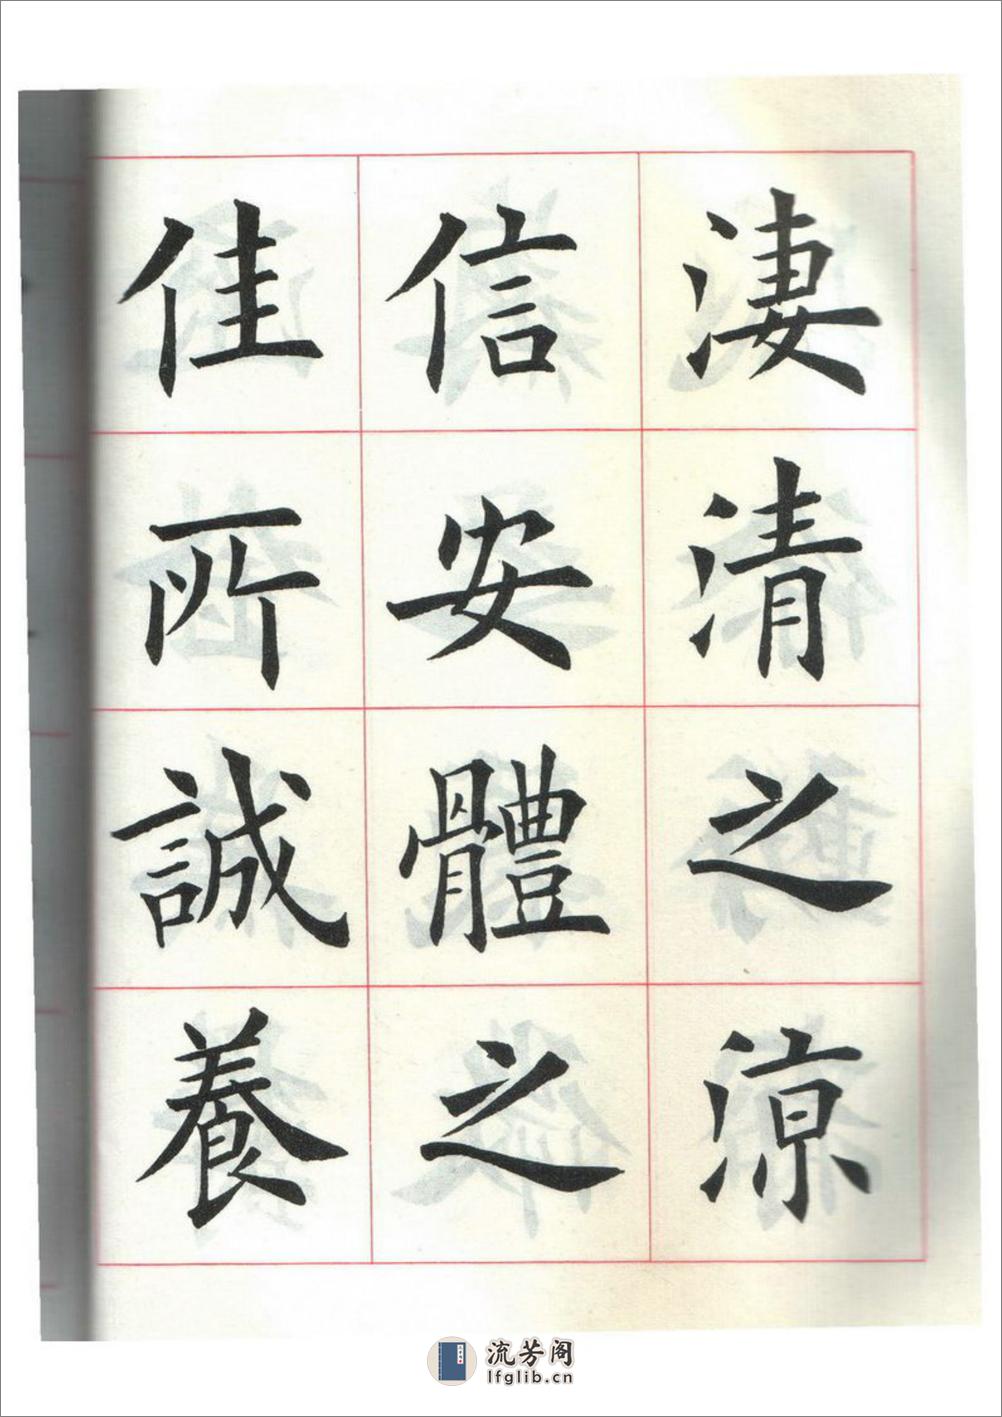 淒清之涼
信安體之
佳所誠養
流芳阁
lfglib.cn